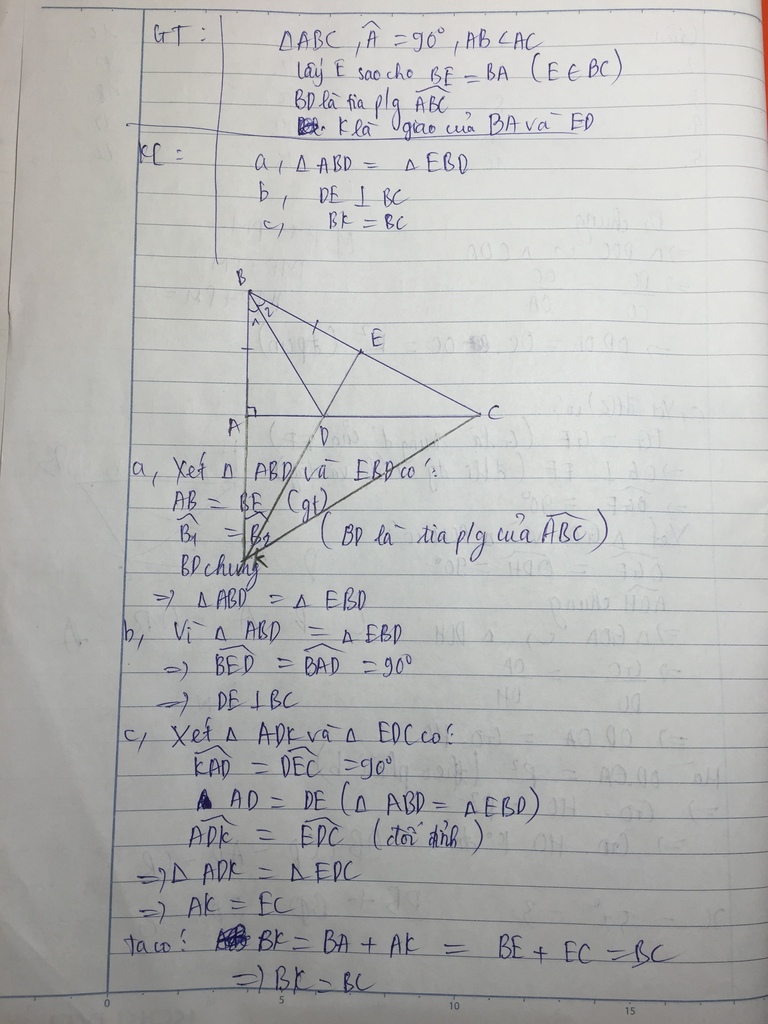 GT :
ΔABC , Â = 90° , AB < AC
lấy E sao cho BE = BA (E ∈ BC)
BD là tia p/g \widehat{ABC}
K là giao của BA và ED
KL :
a, Δ ABD = Δ EBD
b, DE ⊥ BC
c, BK = BC
B
1 2
E
A
D
C
K
a, Xét Δ ABD và EBD có:
AB = BE (gt)
\widehat{B_1} = \widehat{B_2} (BD là tia p/g của \widehat{ABC})
BD chung
=> Δ ABD = Δ EBD
b, Vì Δ ABD = Δ EBD
=> \widehat{BED} = \widehat{BAD} = 90°
=> DE ⊥ BC
c, Xét Δ ADK và Δ EDC có:
\widehat{KAD} = \widehat{DEC} = 90°
AD = DE (Δ ABD = Δ EBD)
\widehat{ADK} = \widehat{EDC} (đối đỉnh)
=> Δ ADK = Δ EDC
=> AK = EC
ta có: BK = BA + AK = BE + EC = BC
=> BK = BC
0 5 10 15